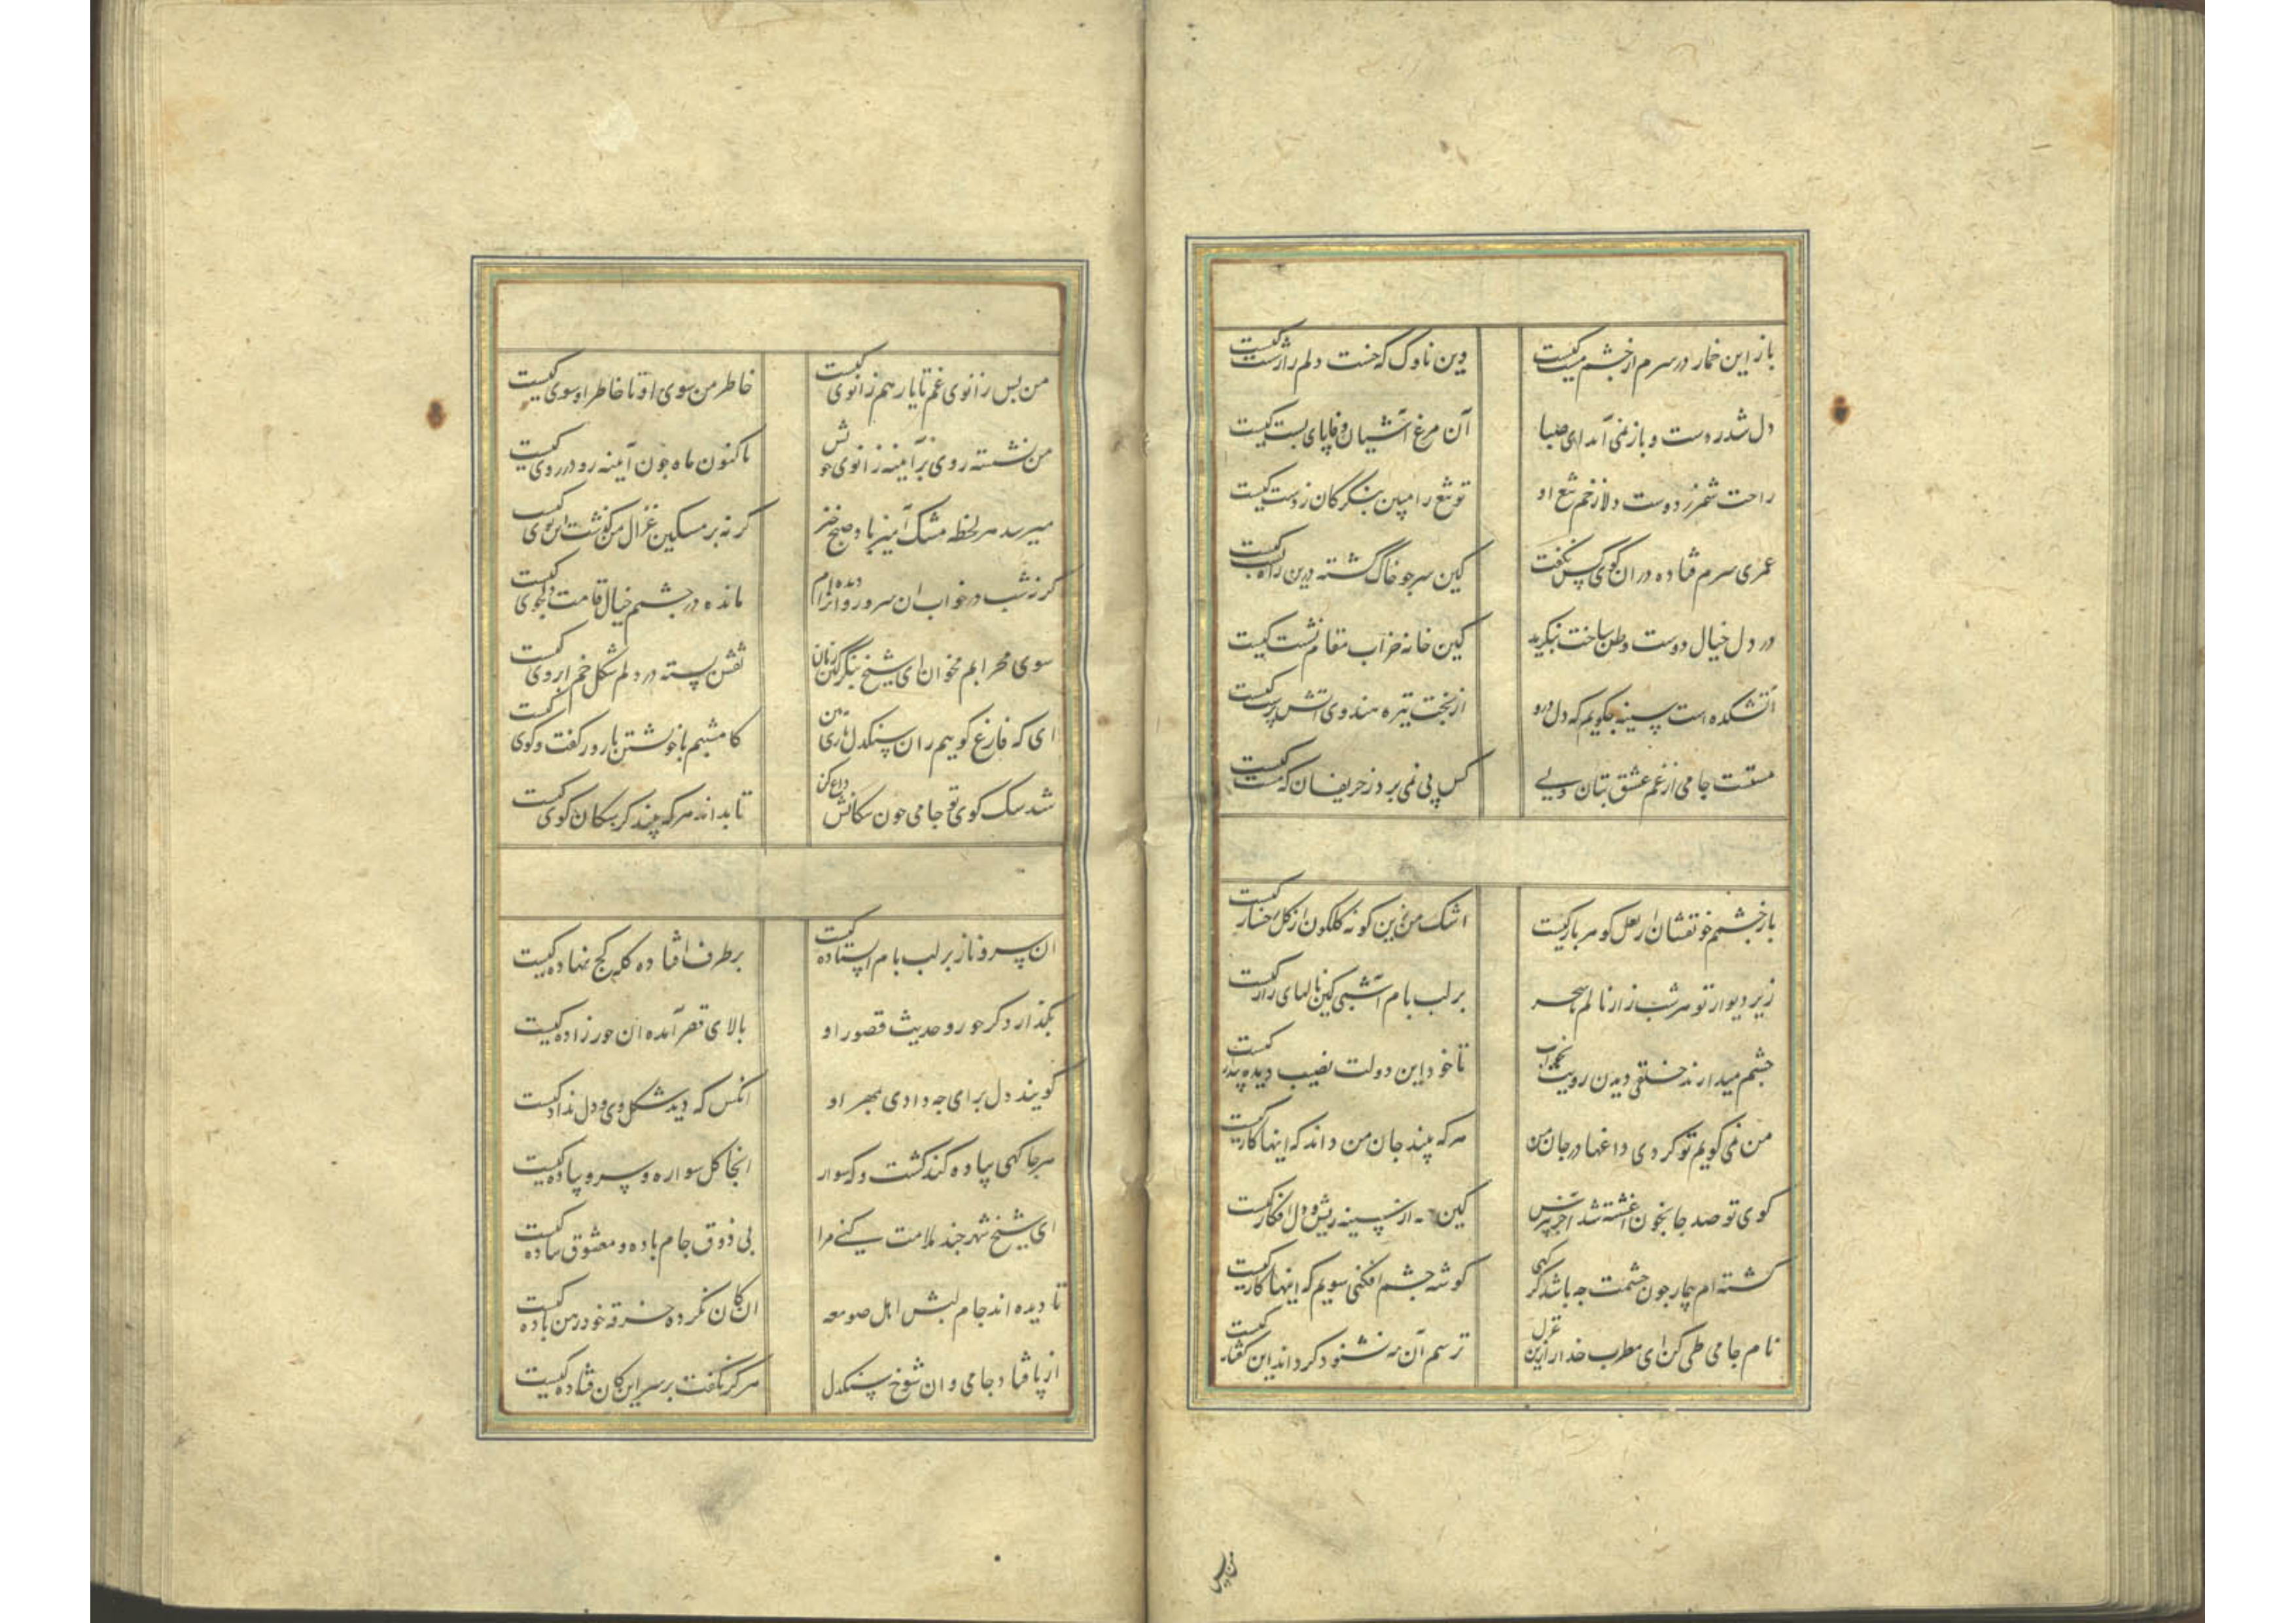 باز این خمار در سرم از چشم مست کیست
وین ناوک که خست دلم را ز شست کیست
دل شد ز دست و باز نمی آید ای صبا
آن مرغ آشیان وفا پای بست کیست
راحت شمر ز دوست دلا زخم تیغ او
تو تیغ را مبین بنگر کان ز دست کیست
عمری سرم فتاده در ان کوی کس نگفت
کین سر جو خاک گشته درین راه پست کیست
در دل خیال دوست وطن ساخت بنگرید
کین خانه خراب مقام نشست کیست
آتشکده است سینه چگویم که دل درو
از بخت تیره هندوی اتش پرست کیست
مستست جامی از غم عشق بتان ولی
کس پی نمی برد ز حریفان که مست کیست
باز چشمم خونفشان از لعل کوهربار کیست
اشک من زین کونه کلکون از کل رخسار کیست
زیر دیوار تو هر شب زار نالم تا سحر
بر لب بام آ شبی کین نالهای زار کیست
چشم میدارند خلقی دیدن رویت بخواب
تا خود این دولت نصیب دیده بیدار کیست
من نمی کویم تو کردی داغها در جان من
هر که بیند جان من داند که اینها کار کیست
کوی تو صد جا بخون اغشته شد آخر بپرس
کین از سینه ریش و دل افکار کیست
کشته ام بیمار جون چشمت جه باشد کر کهی
کوشه چشم افکنی سویم که اینها کار کیست
نام جامی طی کن ای مطرب خدا را زین غزل
ترسم آن مه نشنود کر داند این کفتار کیست
من پس
من پس زانوی غم تا یار هم زانوی کیست
خاطر من سوی او تا خاطر او سوی کیست
من نشسته روی بر آینه زانوی خویش
تا کنون ماه جون آینه رو در روی کیست
میرسد هر لحظه مشک آمیز باد صبح خیز
کر نه بر مسکین غزال من کذشت این بوی کیست
کر نه شب در خواب ان سرو روانرا دیده ام
مانده در چشمم خیال قامت دلجوی کیست
سوی محرابم مخوان ای شیخ بنگر کین زمان
نقش بسته در دلم شکل خم ابروی کیست
ای که فارغ کوییم ران سنکدل
کامشبم با خویشتن تا روز کفت و کوی کیست
شد سک کوی تو جامی جون سکانش داغ کن
تا بداند هر که بیند کز سکان کوی کیست
ان سرو ناز بر لب بام ایستاده کیست
بر طرف افتاده کله کج نهاده کیست
بگذار ذکر حور و حدیث قصور او
بالای قصر آمده ان حور زاده کیست
کویند دل برای جه دادی بمهر او
انکس که دید شکل وی و دل نداد کیست
هر جا کهی پیاده کند کشت و که سوار
انجا کل سواره و سرو پیاده کیست
ای شیخ شهر جند ملامت کنی مرا
بی ذوق جام باده و معشوق ساده کیست
تا دیده اند جام لبش اهل صومعه
ان کان نکرده خرقه خود رهن باده کیست
از پا فتاد جامی و ان شوخ سنکدل
هرگز نگفت بر سر این کان فتاده کیست